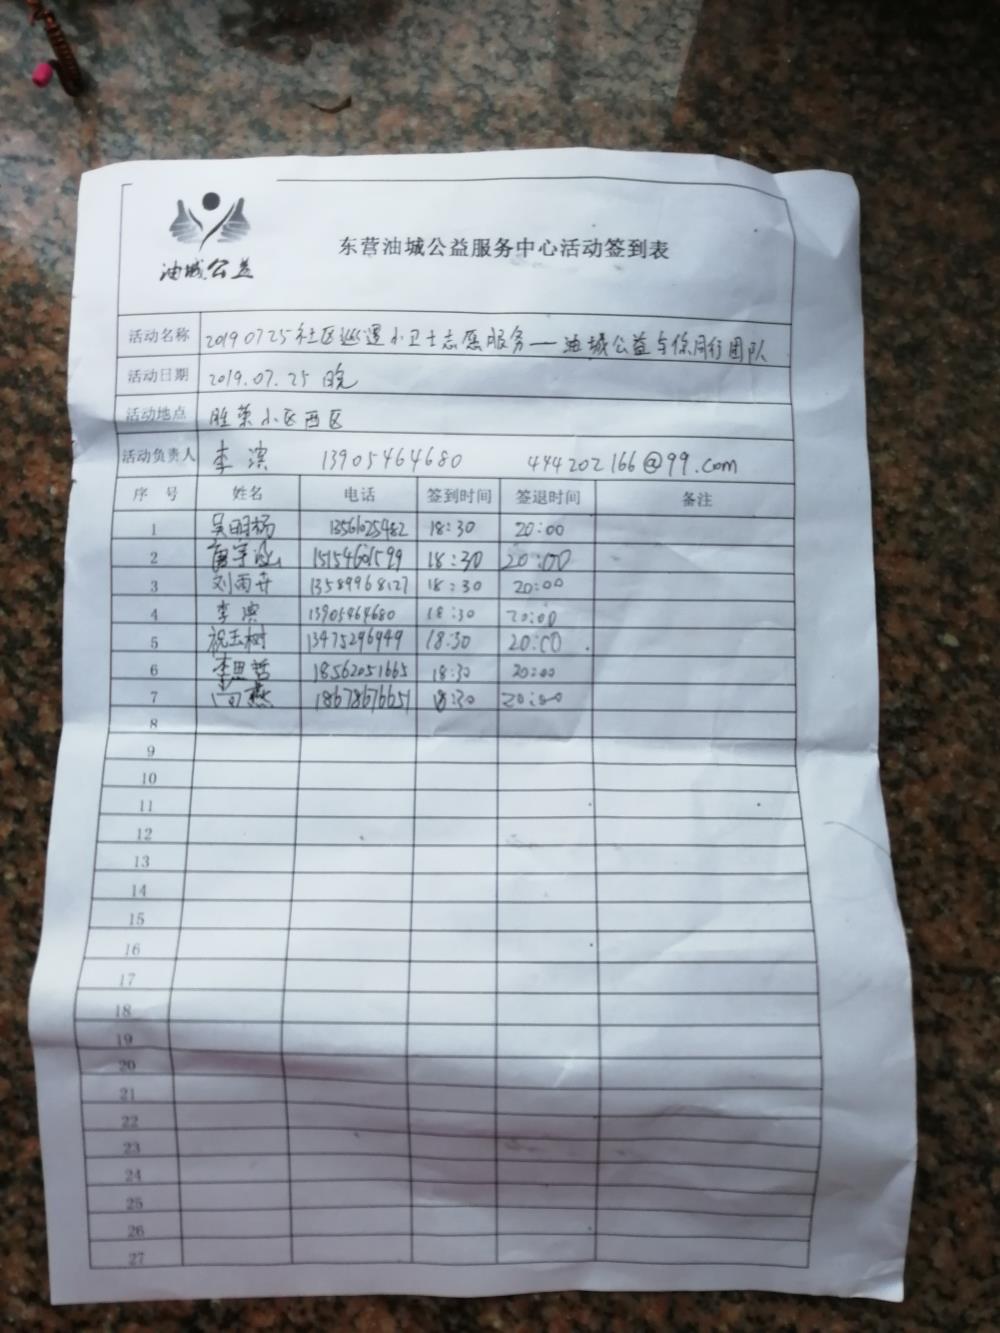 油城公益
东营油城公益服务中心活动签到表
活动名称 20190725社区巡逻小卫士志愿服务—油城公益与你同行团队
活动日期 2019.07.25 晚
活动地点 胜莱小区西区
活动负责人 李滨 13905464680 444202166@99.com
序 号 姓名 电话 签到时间 签退时间 备注
1 吴明杨 13561025482 18:30 20:00
2 15154601599 18:30 20:00
3 刘雨卉 13589968127 18:30 20:00
4 李滨 13905464680 18:30 20:00
5 祝玉树 13475296949 18:30 20:00
6 李思哲 18562051665 18:30 20:00
7 尚燕 18678676651 18:30 20:00
8
9
10
11
12
13
14
15
16
17
18
19
20
21
22
23
24
25
26
27